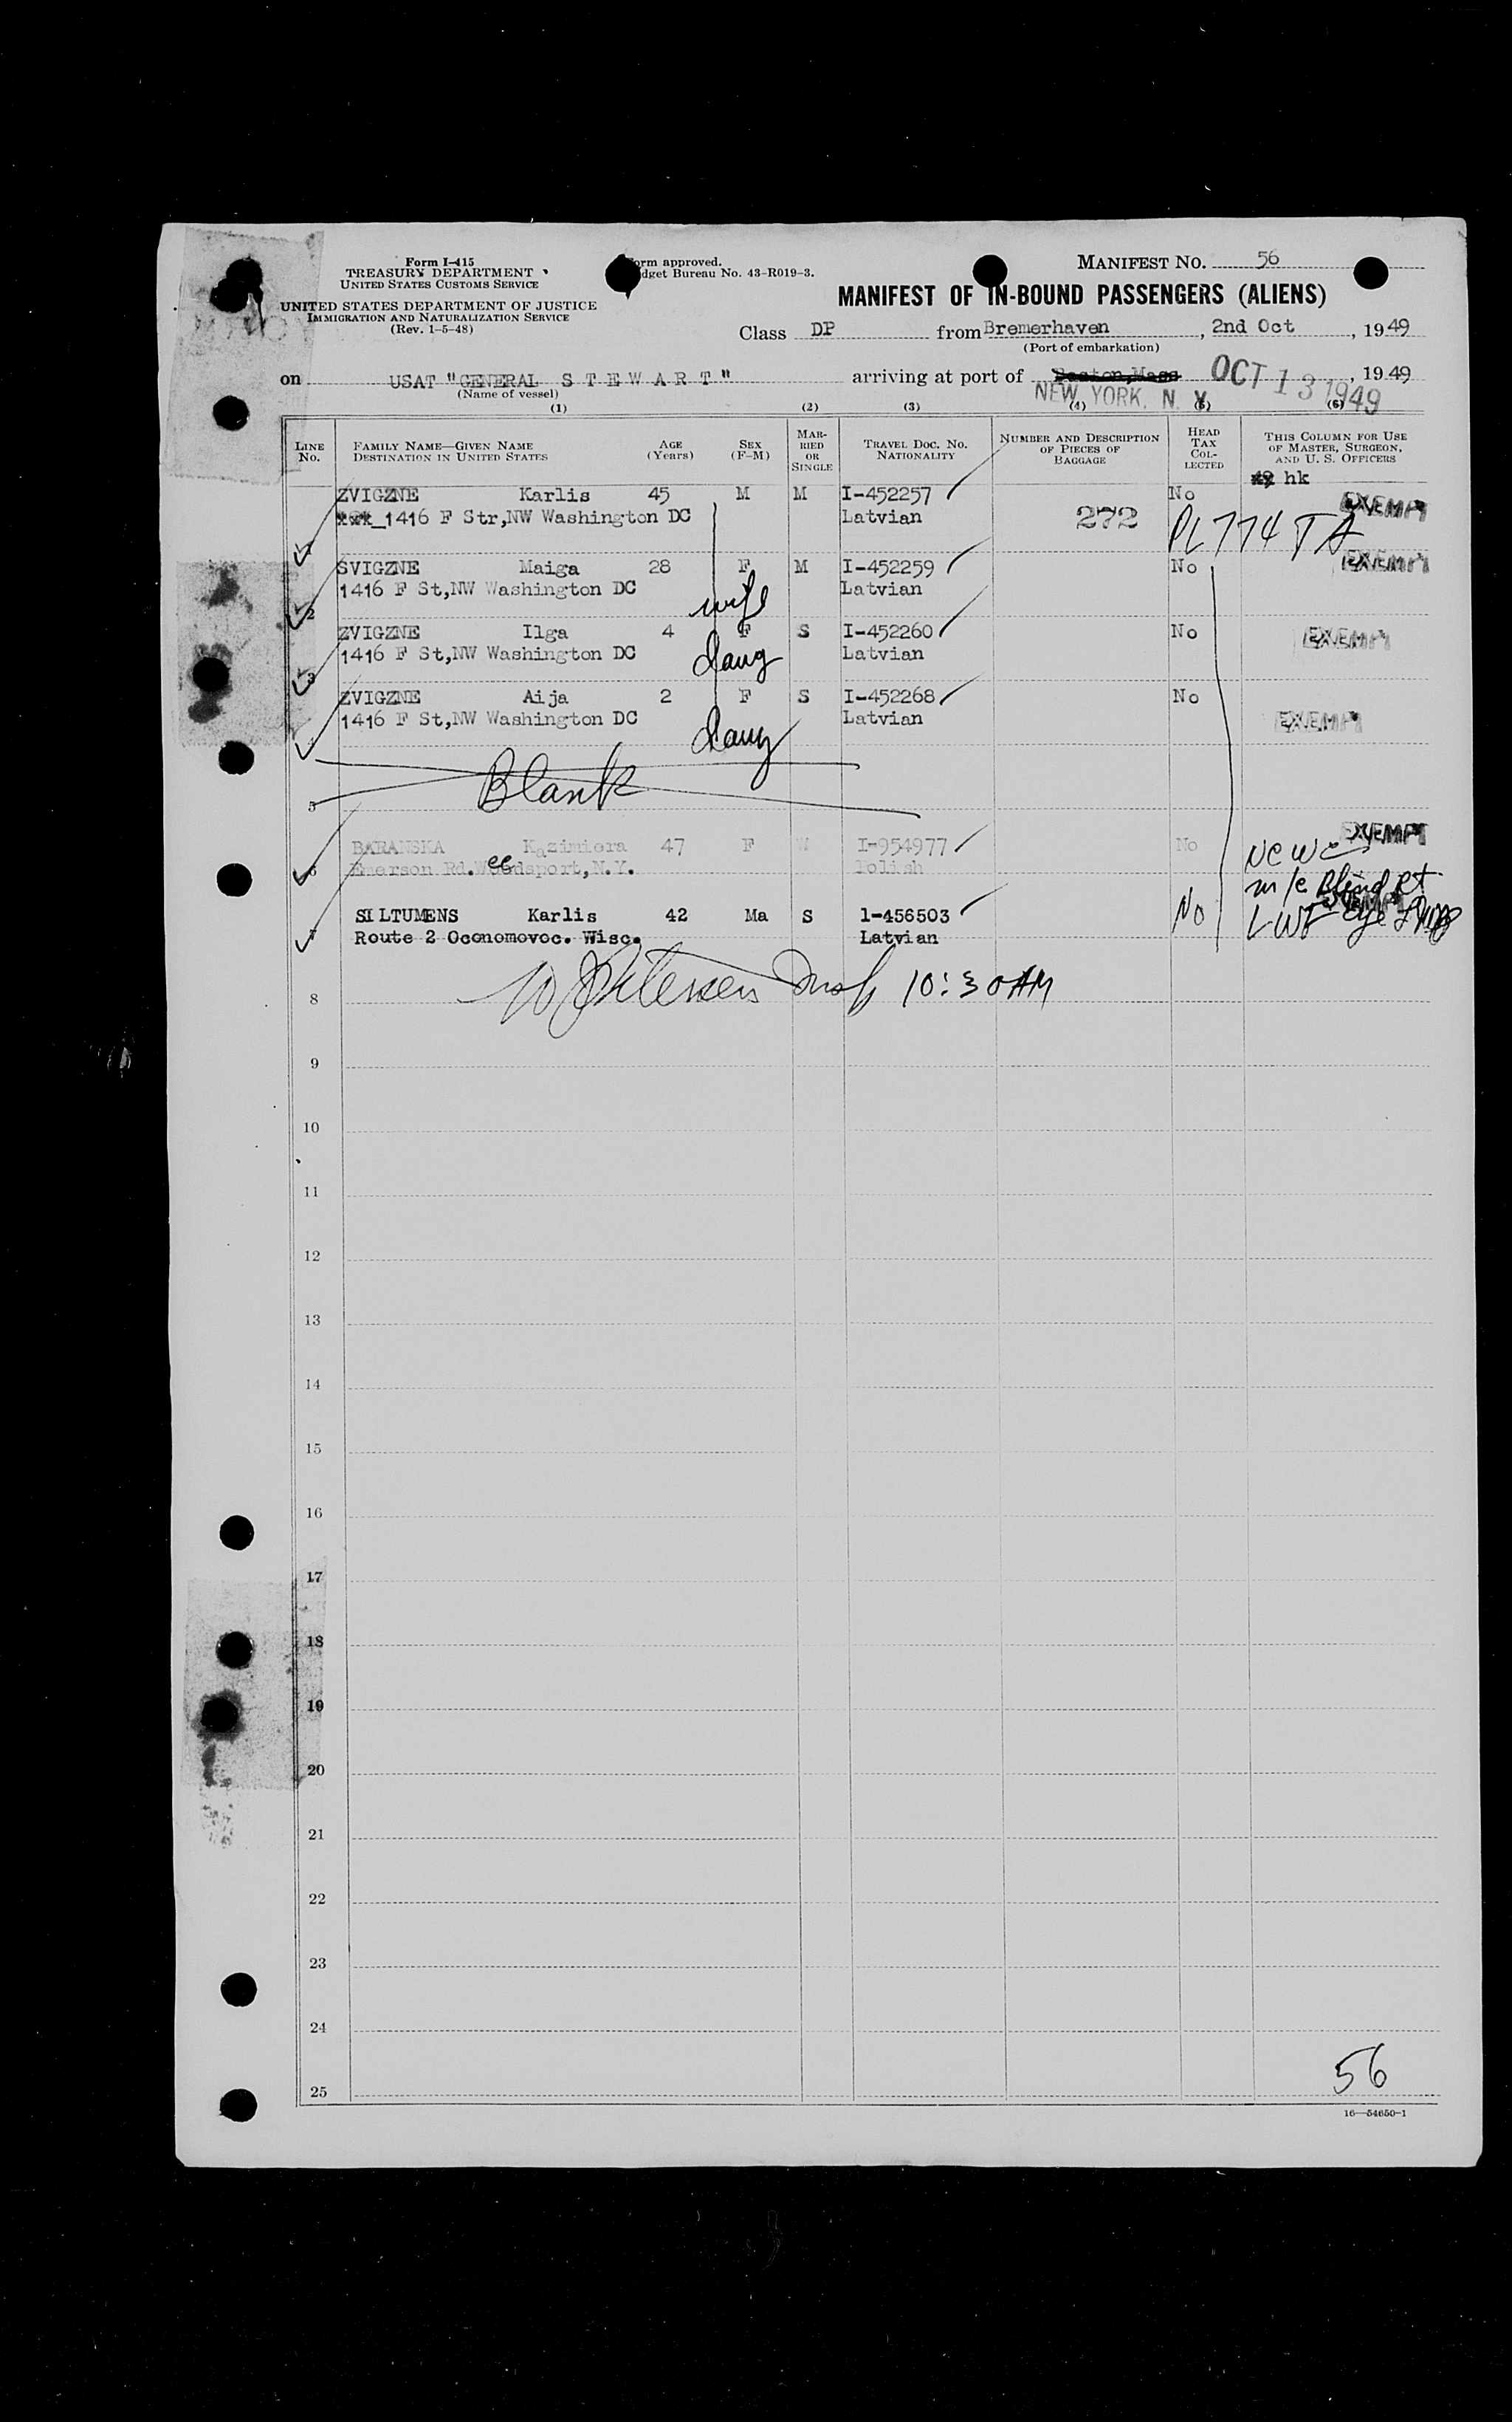 Form I-415
TREASURY DEPARTMENT
UNITED STATES CUSTOMS SERVICE
UNITED STATES DEPARTMENT OF JUSTICE
IMMIGRATION AND NATURALIZATION SERVICE
(Rev. 1-5-48)
orm approved.
dget Bureau No. 43-R019-3.
MANIFEST NO. 56
MANIFEST OF IN-BOUND PASSENGERS (ALIENS)
Class DP from Bremerhaven, 2nd Oct, 1949
(Port of embarkation)
on USAT "GENERAL S T E W A R T" arriving at port of Boston,Mass OCT 13 1949, 1949
(Name of vessel)
NEW YORK, N. Y.
(1) (2) (3) (4) (5) (6)
LINE No. FAMILY NAME—GIVEN NAME DESTINATION IN UNITED STATES AGE (Years) SEX (F-M) MARRIED OR SINGLE TRAVEL DOC. NO. NATIONALITY NUMBER AND DESCRIPTION OF PIECES OF BAGGAGE HEAD TAX COLLECTED THIS COLUMN FOR USE OF MASTER, SURGEON, AND U. S. OFFICERS
hk
ZVIGZNE Karlis 45 M M I-452257 No EXEMPT
1416 F Str,NW Washington DC Latvian 272 PL 774 TA
SVIGZNE Maiga 28 F M I-452259 No EXEMPT
1416 F St,NW Washington DC wife Latvian
2
ZVIGZNE Ilga 4 F S I-452260 No EXEMPT
1416 F St,NW Washington DC daug Latvian
3
ZVIGZNE Aija 2 F S I-452268 No
1416 F St,NW Washington DC daug Latvian EXEMPT
Blank
5
EXEMPT
BARANSKA Kazimiera 47 F W I-954977 No
Emerson Rd.Weedsport,N.Y. Polish
6
m/c Blind rt
SILTUMENS Karlis 42 Ma S 1-456503 No eye
7 Route 2 Oconomovoc. Wisc. Latvian
8 Petersen Insp 10:30AM
9
10
11
12
13
14
15
16
17
18
19
20
21
22
23
24
56
25
16—54650-1